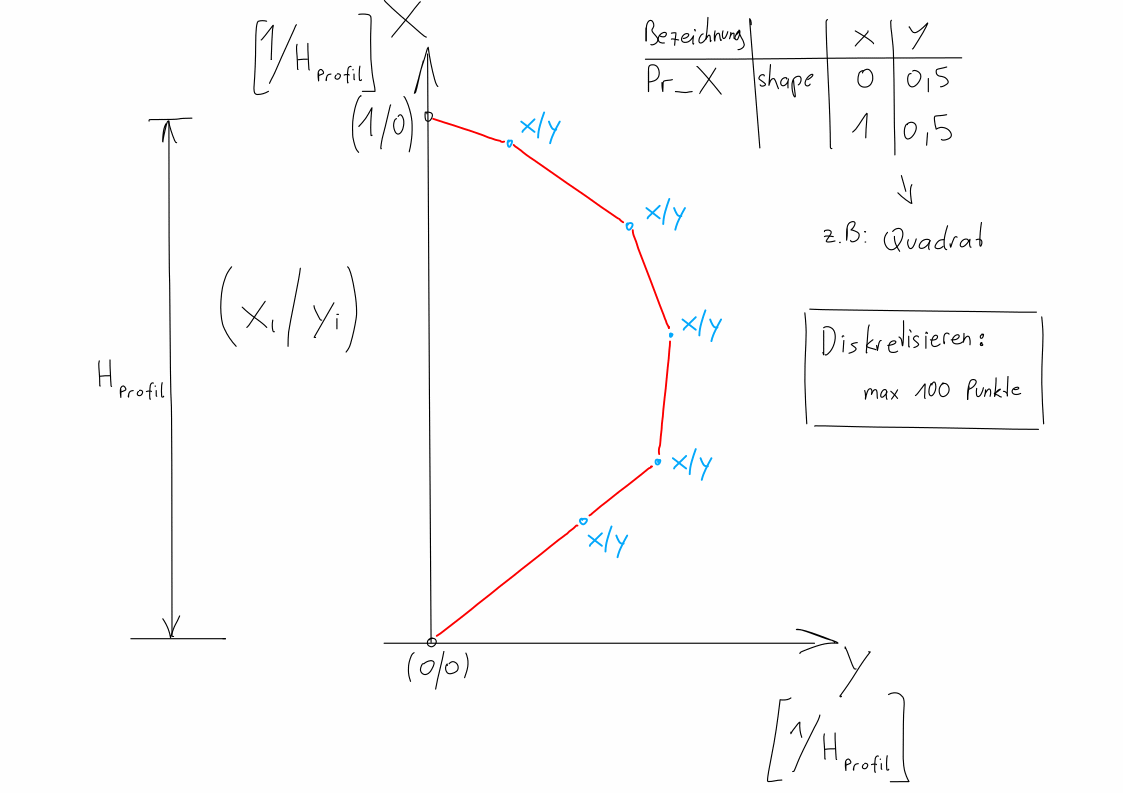 [1/H Profil] X
(1/0)
x/y
x/y
(xi/yi)
x/y
H Profil
x/y
x/y
(0/0)
y
[1/H Profil]
Bezeichnung x y
Pr_X shape 0 0,5
1 0,5
z.B: Quadrat
Diskretisieren:
max 100 Punkte